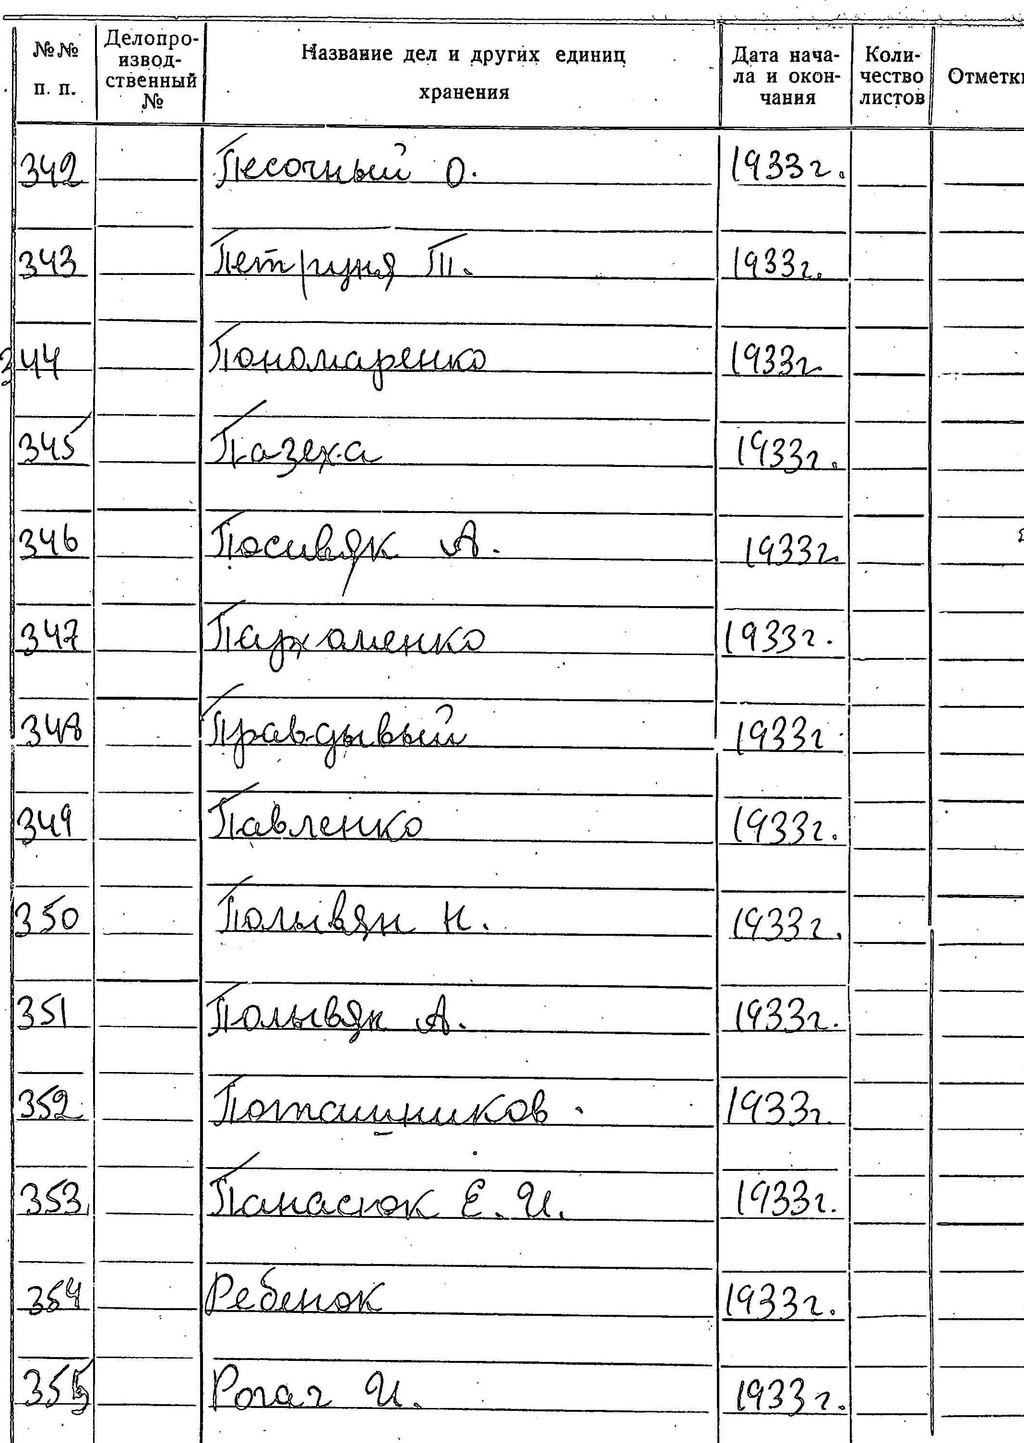 №№ п. п. Делопро-извод-ственный № Название дел и других единиц хранения Дата нача-ла и окон-чания Коли-чество листов Отметки
342 Песочный О. 1933г.
343 Петруня П. 1933г.
344 Пономаренко 1933г.
345 Пазеха 1933г.
346 Посивяк А. 1933г.
347 Пархоменко 1933г.
348 Правдывый 1933г.
349 Павленко 1933г.
350 Полывян Н. 1933г.
351 Полывян А. 1933г.
352 Поташников 1933г.
353 Панасюк Е. И. 1933г.
354 Ребенок 1933г.
355 Рогач И. 1933г.